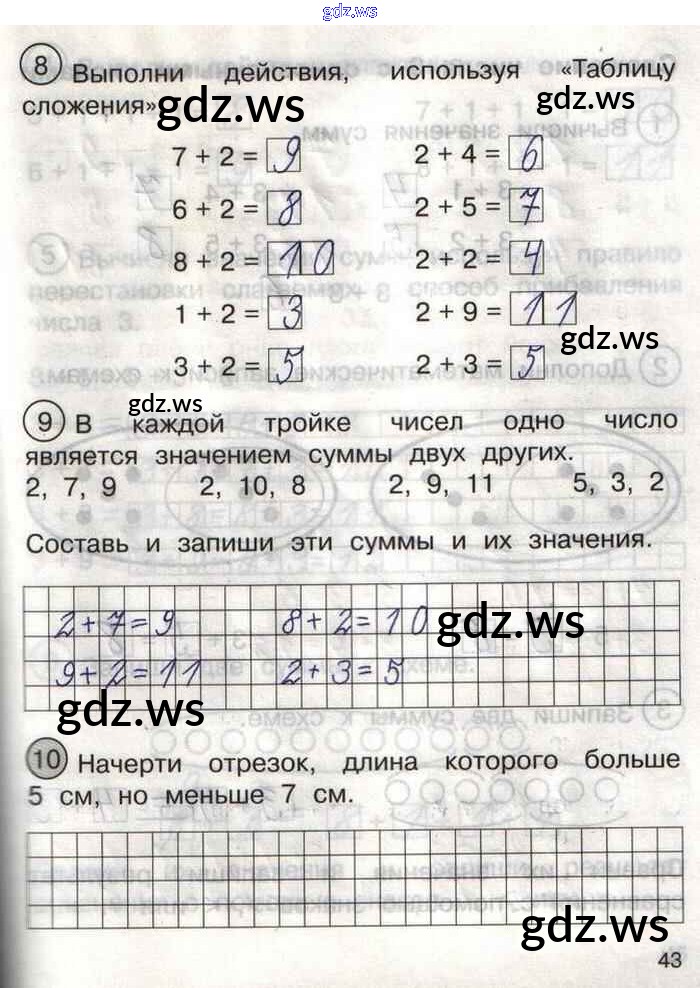 gdz.ws
8 Выполни действия, используя «Таблицу
сложения»
gdz.ws
gdz.ws
7 + 2 = 9 2 + 4 = 6
6 + 2 = 8 2 + 5 = 7
8 + 2 = 10 2 + 2 = 4
1 + 2 = 3 2 + 9 = 11
gdz.ws
3 + 2 = 5 2 + 3 = 5
gdz.ws
9 В каждой тройке чисел одно число
является значением суммы двух других.
2, 7, 9 2, 10, 8 2, 9, 11 5, 3, 2
Составь и запиши эти суммы и их значения.
2+7=9 8+2=10
gdz.ws
9+2=11 2+3=5
gdz.ws
10 Начерти отрезок, длина которого больше
5 см, но меньше 7 см.
gdz.ws
43